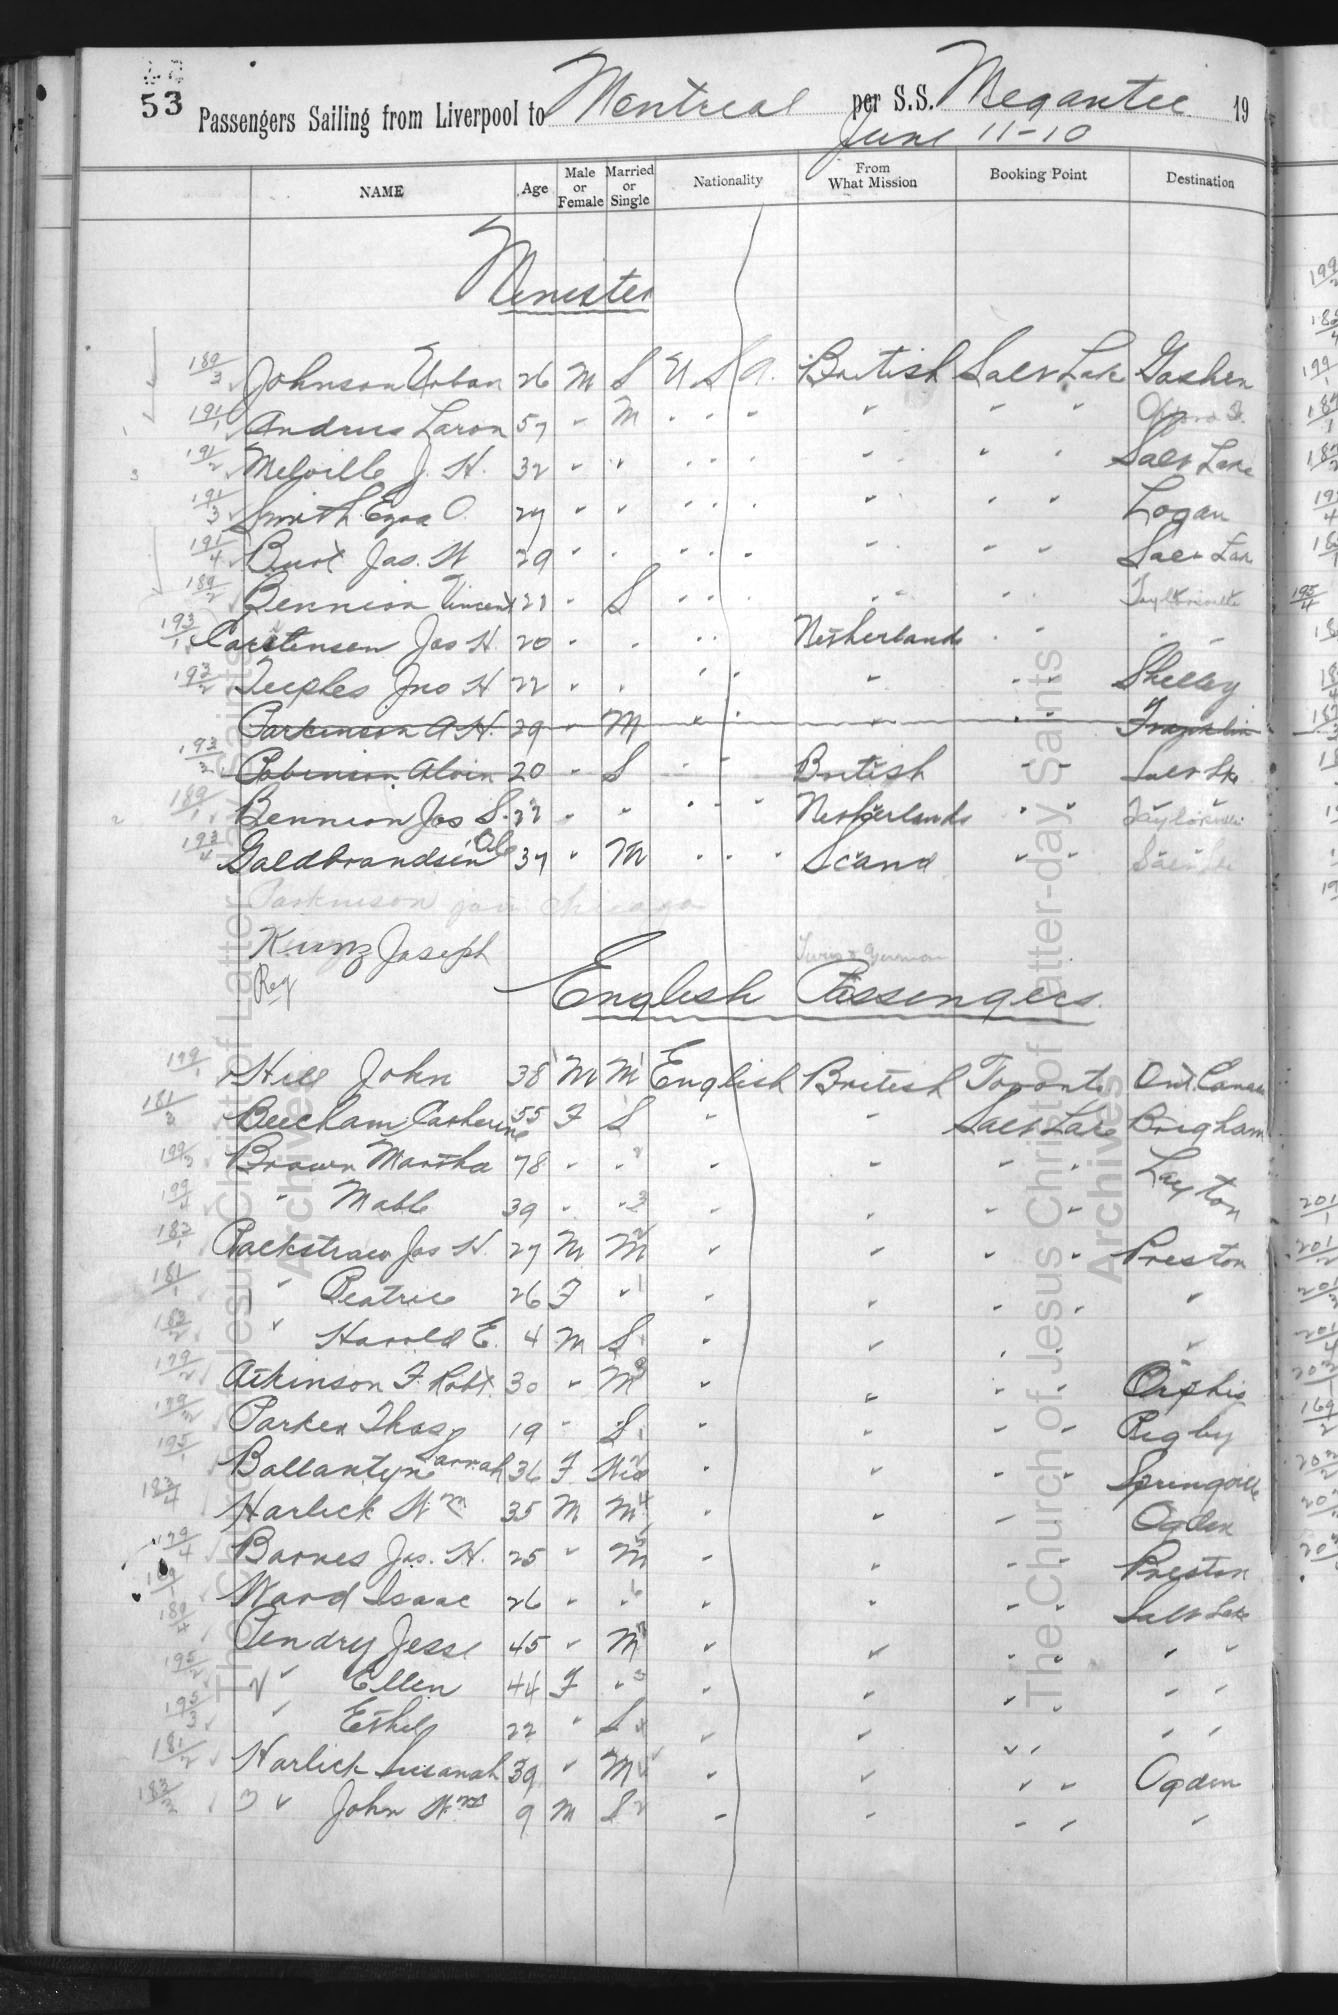 53 Passengers Sailing from Liverpool to Montreal per S.S. Megantic 19
June 11-10
NAME Age Male or Female Married or Single Nationality From What Mission Booking Point Destination
Minister
189/3 Johnson Urban 26 M S U S A. British Salt Lake Goshen
191/1 Andrus Laron 57 " M " " " " " "
191/2 Melville J. H. 32 " " " " " " " " Salt Lake
191/3 Smith Ezra O 27 " " " " " " " " Logan
191/4 Burt Jas. W 29 " " " " " " " " Salt Lak
189/2 Bennion Vincent 21 " S " " " " " Taylorsville
193/1 Carstensen Jas H. 20 " " " " Netherlands " " " "
193/2 Teeples Jno H 22 " " " " " " " Shelley
Parkinson A H. 29 " M " " " " " Franklin
193/3 Robinson Alvin 20 " S " " British " " Salt Lk
189/1 Bennion Jos S. 22 " " " " " Netherlands " " Taylorsville
193/4 Guldbrandsen Ole 37 " M " " " Scand " " Salt Lk
Parkinson join Chicago
Kunz Joseph Swiss & German
Reg
English Passengers.
179/1 Hill John 38 M M English British Toronto Ont. Canada
181/3 Beecham Catherine 55 F S " " Salt Lake Brigham
199/3 Brown Martha 78 " " " " " " Layton
199/4 " Mable 39 " " " " " "
183/1 Rackstraw Jas H. 27 M M " " " " Preston
181/1 " Beatrice 26 F " " " " " "
183/2 " Harold E. 4 M S " " " " "
179/2 Atkinson F. Robt. 30 " M " " " "
179/3 Parker Thos 19 " S " " " " Rigby
195/1 Ballantyne Sarah 36 F Wid " " " " Springville
183/4 Harlick Wm 35 M M " " " Ogden
179/4 Barnes Jas. H. 25 " M " " " " Preston
Ward Isaac 26 " " " " " " Salt Lake
189/4 Pendry Jesse 45 " M " " " " " "
195/2 " Ellen 44 F " " " " " " "
195/3 " Ethel 22 " S " " " " " "
181/2 Harlick Susanah 39 " M " " " " Ogden
183/3 " John Wm 9 M S " " " " "
The Church of Jesus Christ of Latter-day Saints
Archives
The Church of Jesus Christ of Latter-day Saints
Archives